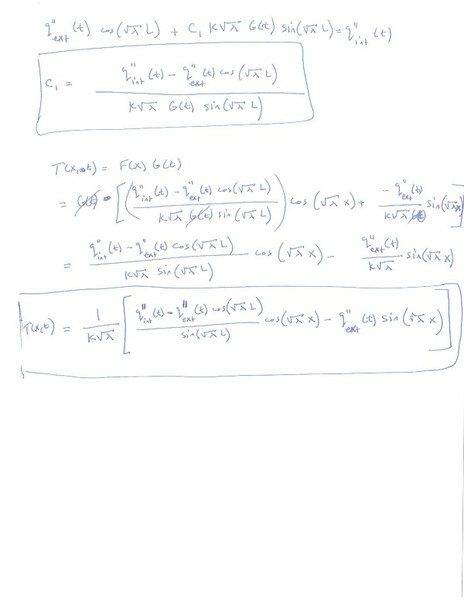 q''ext(t) cos(√λ L) + C₁ K√λ G(t) sin(√λ L) = q''int(t)
C₁ = (q''int(t) − q''ext(t) cos(√λ L)) / (K√λ G(t) sin(√λ L))
T(x,t) = F(x) G(t)
= [((q''int(t) − q''ext(t) cos(√λ L)) / (K√λ G(t) sin(√λ L))) cos(√λ x) + (−q''ext(t) / (K√λ G(t))) sin(√λ x)]
= (q''int(t) − q''ext(t) cos(√λ L)) / (K√λ sin(√λ L)) cos(√λ x) − (q''ext(t) / (K√λ)) sin(√λ x)
T(x,t) = (1 / (K√λ)) [(q''int(t) − q''ext(t) cos(√λ L)) / (sin(√λ L)) cos(√λ x) − q''ext(t) sin(√λ x)]